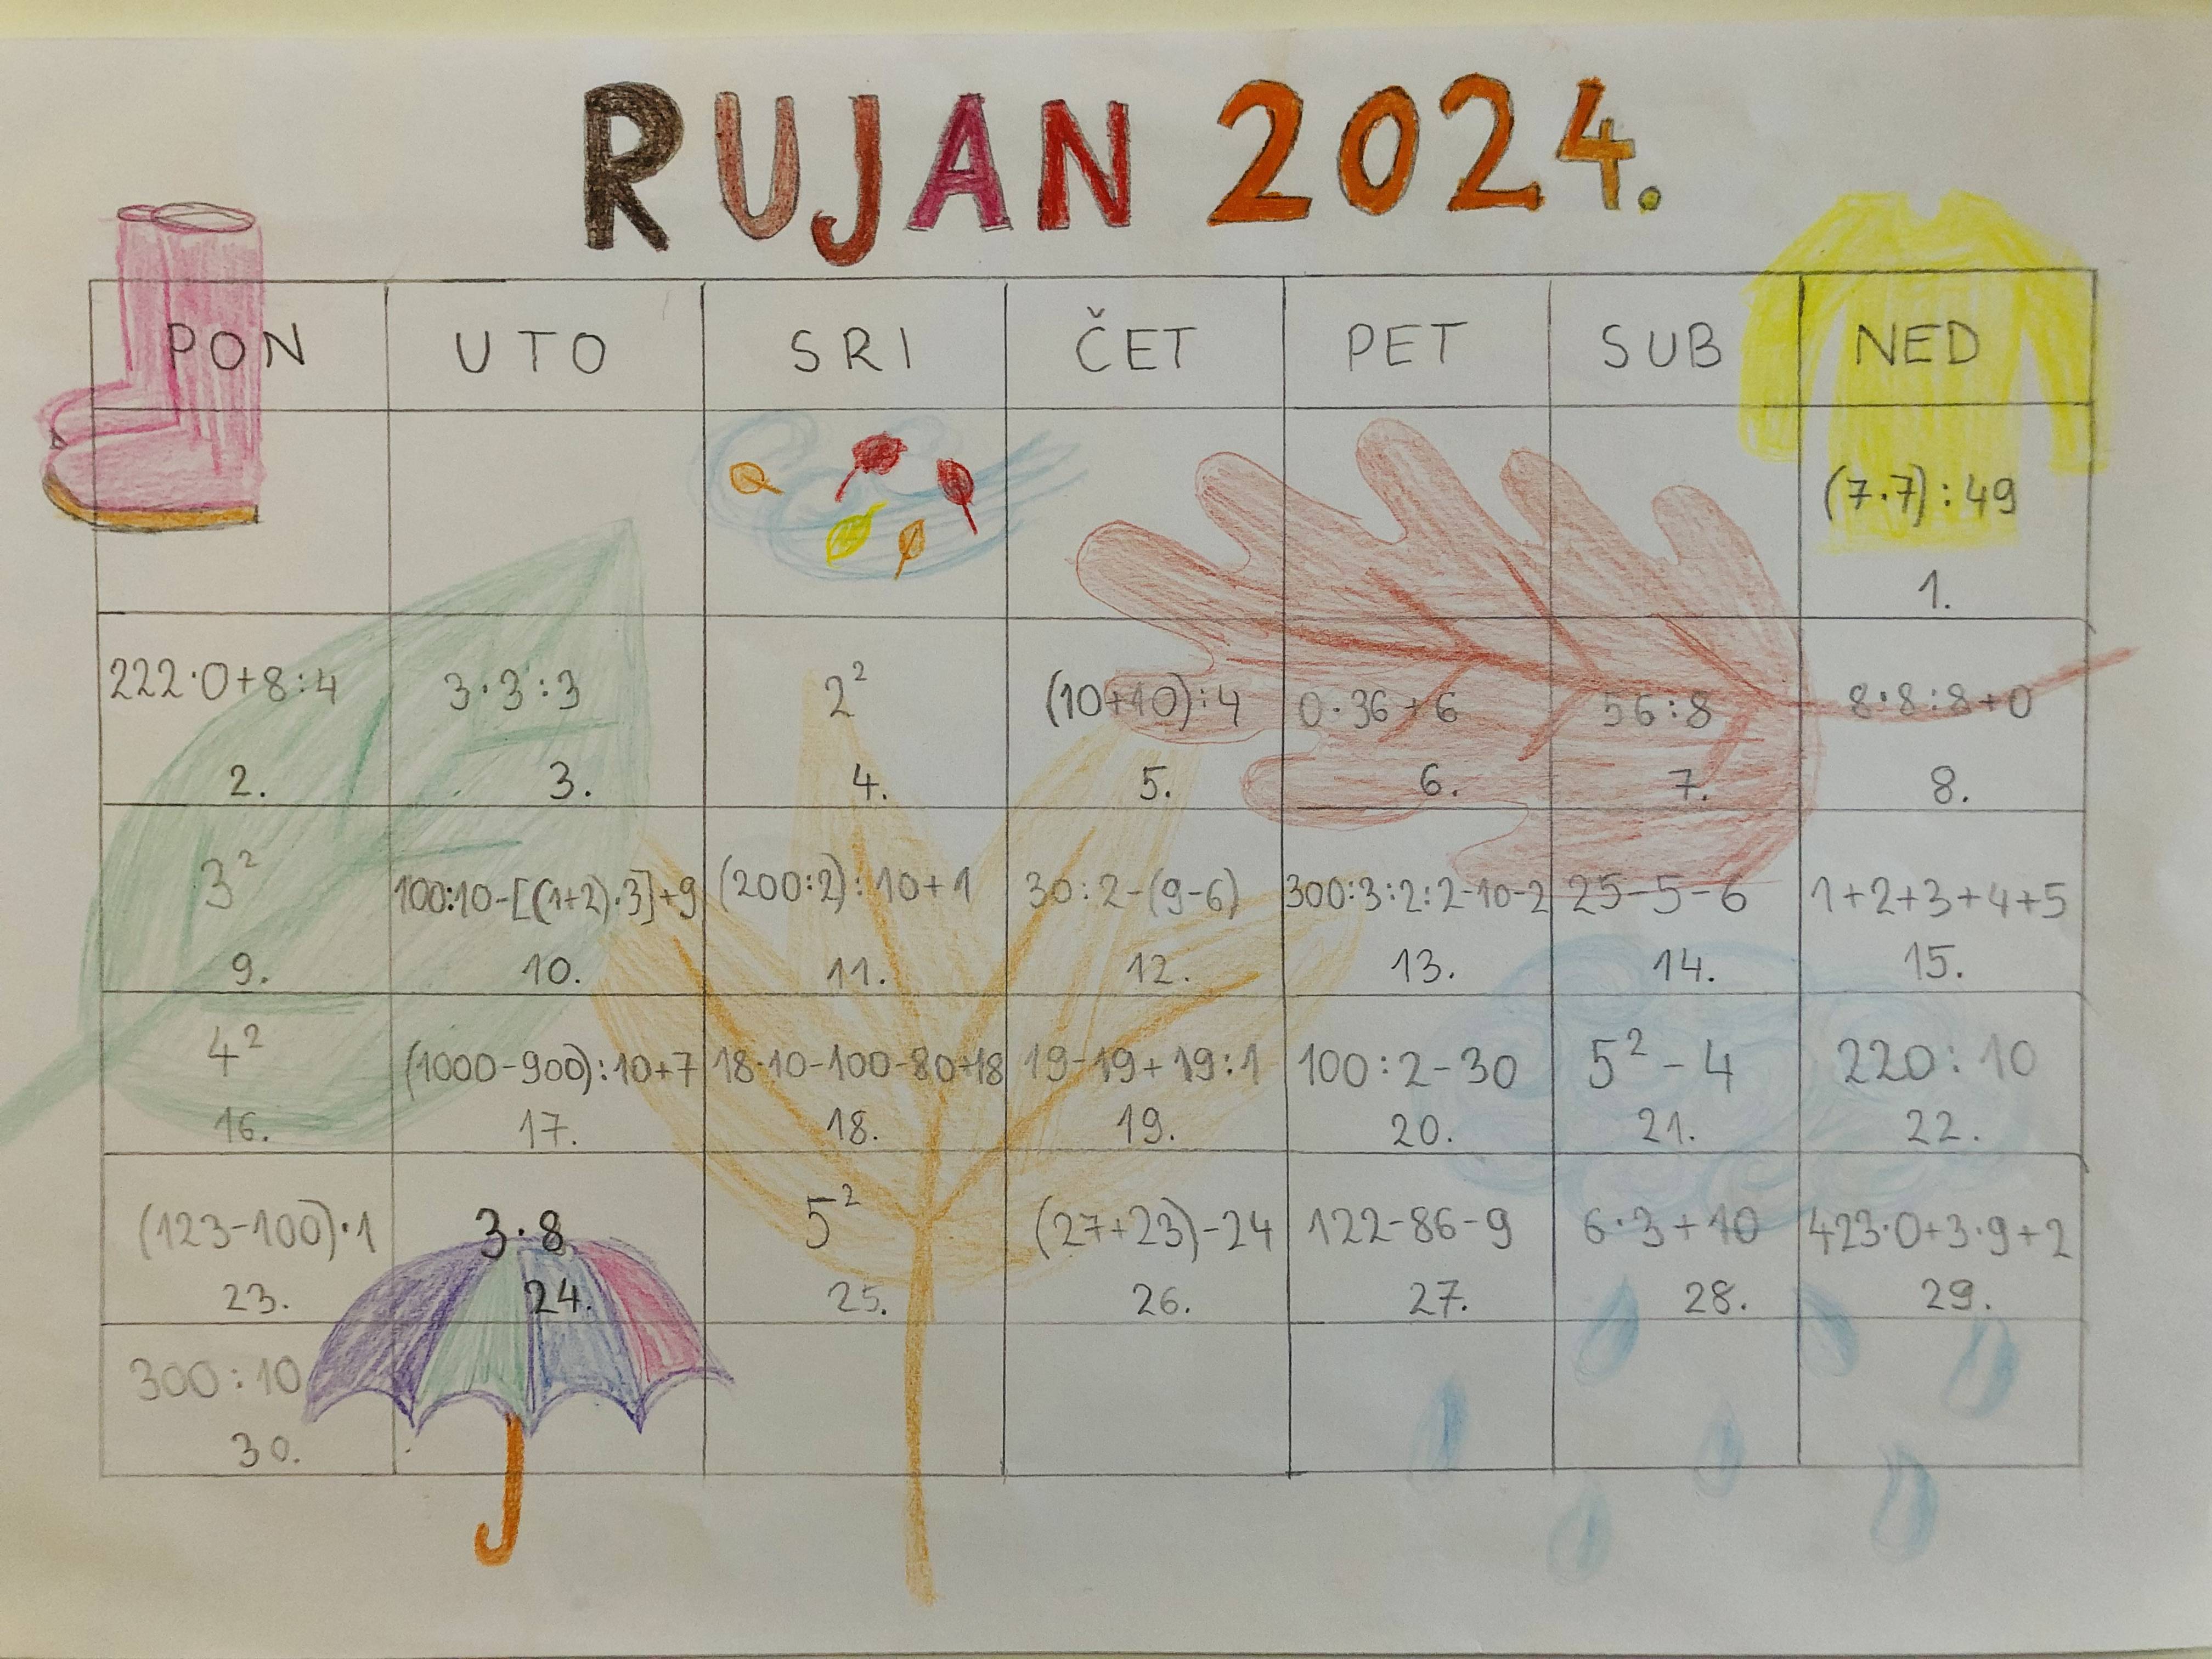 RUJAN 2024.
PON UTO SRI ČET PET SUB NED
(7·7):49
1.
222·0+8:4 3·3:3 2² (10+10):4 0·36+6 56:8 8·8:8+0
2. 3. 4. 5. 6. 7. 8.
3² 100:10-[(1+2)·3]+9 (200:2):10+1 30:2-(9-6) 300:3:2:2-10-2 25-5-6 1+2+3+4+5
9. 10. 11. 12. 13. 14. 15.
4² (1000-900):10+7 18·10-100-80+18 19-19+19:1 100:2-30 5²-4 220:10
16. 17. 18. 19. 20. 21. 22.
(123-100)·1 3·8 5² (27+23)-24 122-86-9 6·3+10 423·0+3·9+2
23. 24. 25. 26. 27. 28. 29.
300:10
30.